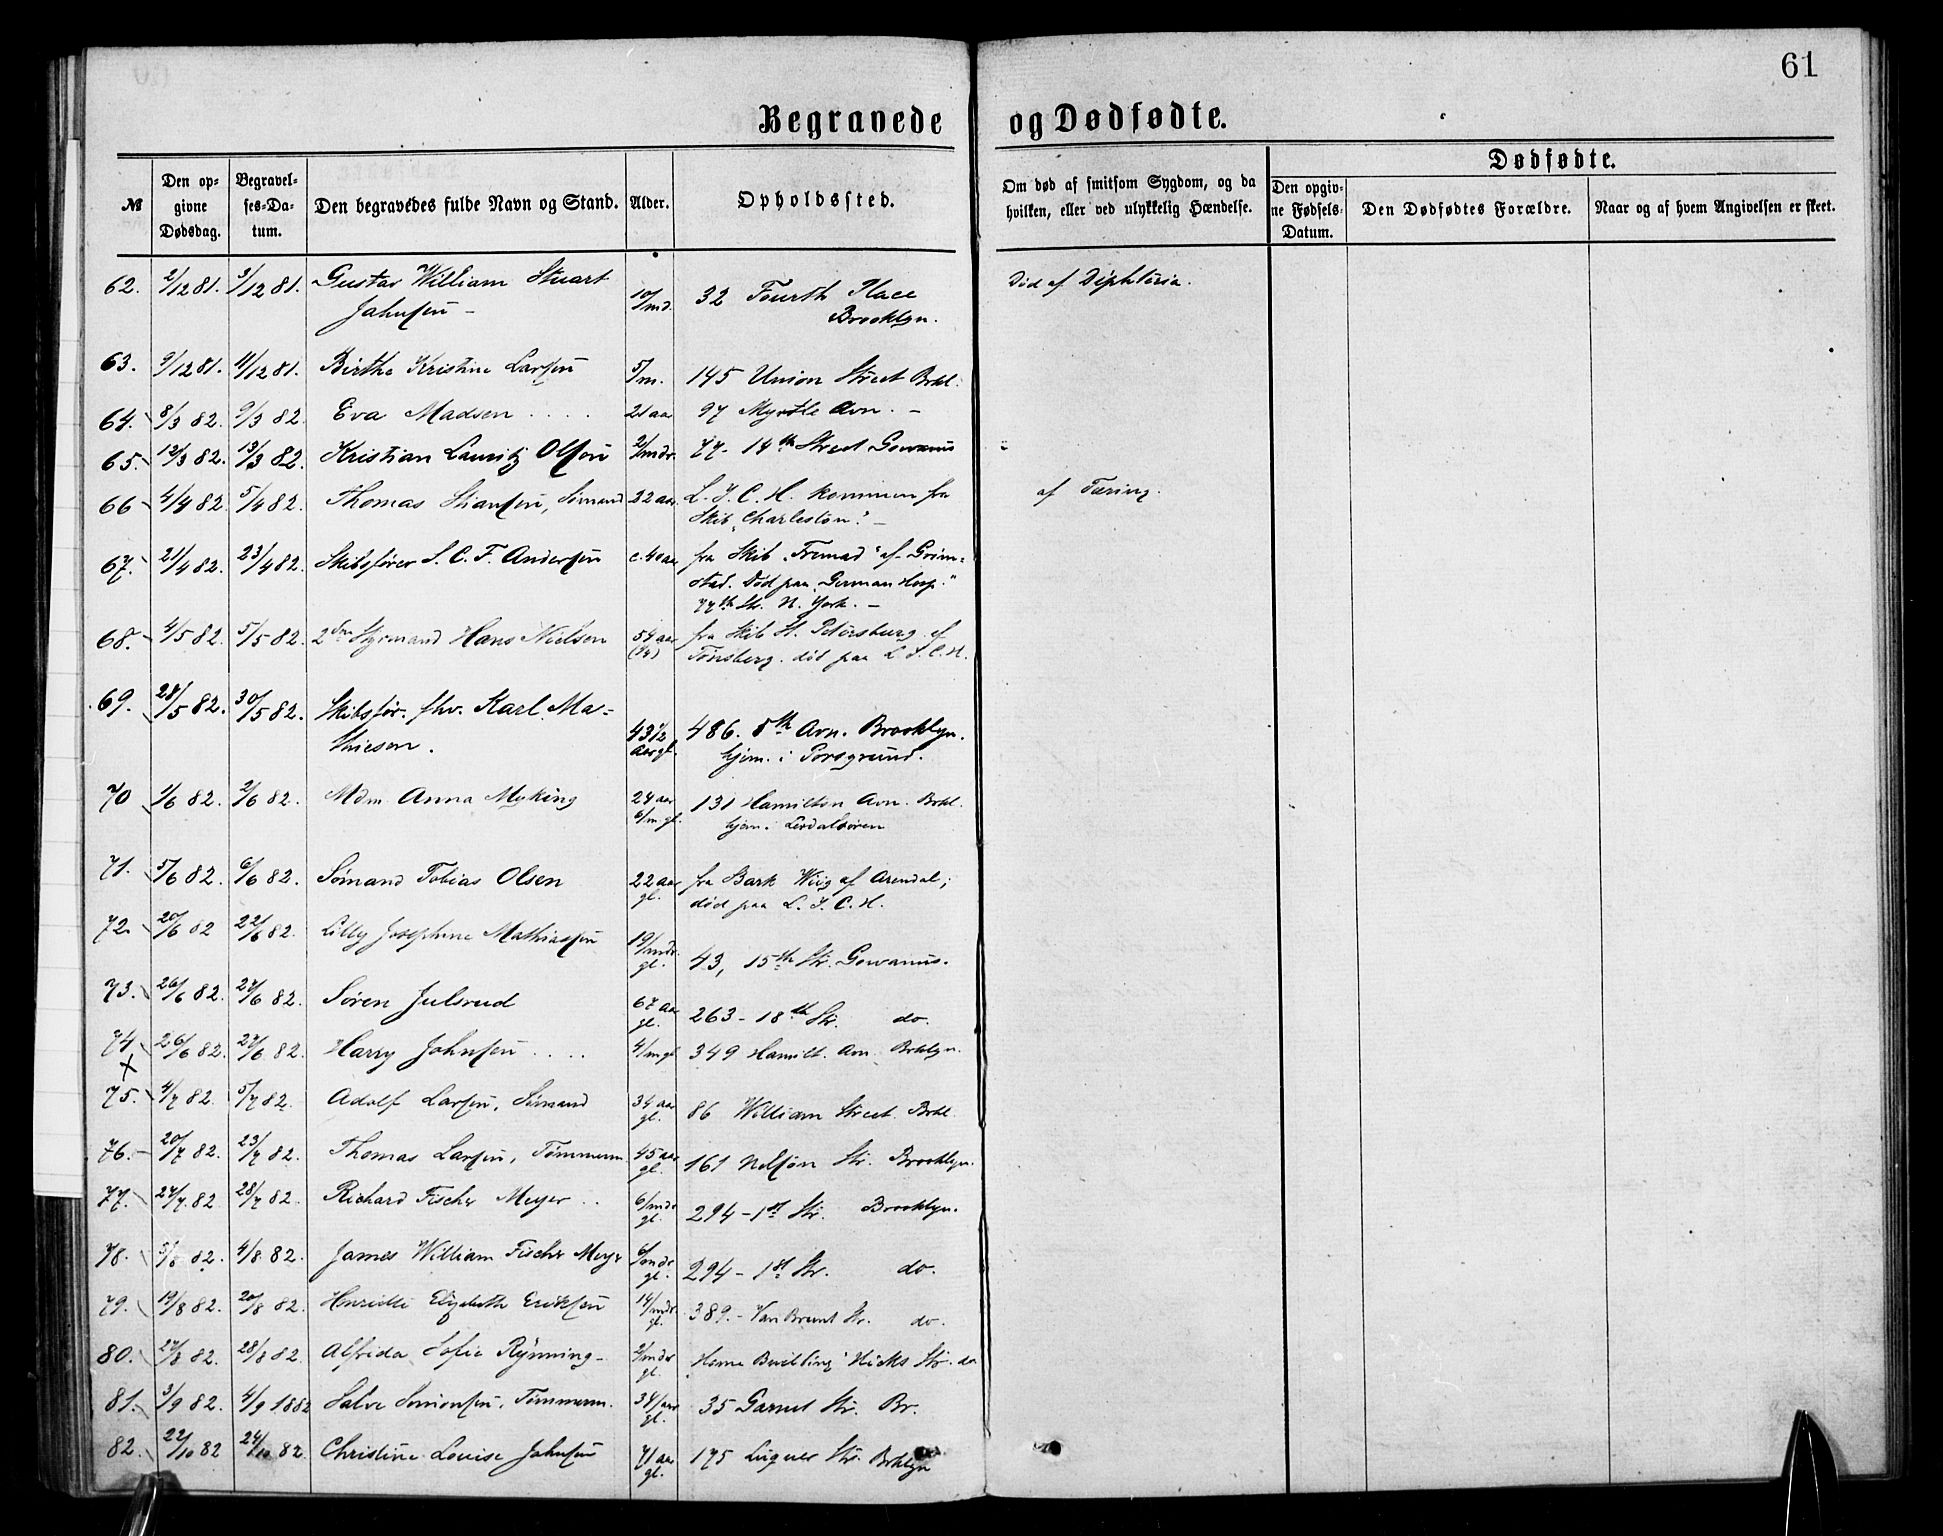 61
Begravede og Dødfødte.
№ | Den opgivne Dødsdag. | Begravelses-Datum. | Den begravedes fulde Navn og Stand. | Alder. | Opholdssted. | Om død af smitsom Sygdom, og da hvilken, eller ved ulykkelig Hændelse. | Dødfødte. Den opgivne Fødsels-Datum. | Den Dødfødtes Forældre. | Naar og af hvem Angivelsen er skeet.
62. 2/12 81. 3/12 81. Gustav William Stuart 10/md. 32 Fourth Place Død af Diphteria.
Johnsen – Brooklyn.
63. 9/12 81. 11/12 81. Birthe Kristine Larsen 5/m. 145 Union Street Brkl.
64. 8/3 82. 9/3 82. Eva Madsen .... 21 aar 97 Myrtle Avn. –
65. 12/3 82. 13/3 82. Kristian Lauritz Olsen 2/mdr. 77 - 14th Street Gowanus
66 4/4 82. 5/4 82. Thomas Stiansen, Sømand 22 aar L. I. C. H. kommen fra af Tæring.
Skib „Charleston". –
67. 21/4 82. 23/4 82. Skibsfører S. C. F. Andersen c. 40 aar fra Skib „Fremad" af Grim-
stad. Død paa „German Hosp."
77th Str. N. York. –
68. 4/5 82. 5/5 82. 2den Styrmand Hans Nielsen 54 aar fra Skib St. Petersburg af
(3/4) Tønsberg. død paa L. I. C. H.
69. 28/5 82. 30/5 82. Skibsfør. fhv. Karl Ma-
thiesen. 43 1/2 aar gl. 486. 5th Avn. Brooklyn.
hjem. i Porsgrund.
70 1/6 82. 2/6 82. Mdm Anna Myking 24 aar 131 Hamilton Avn. Brkl.
6/m. gl. hjem. i Lerdalsøren
71. 5/6 82. 6/6 82. Sømand Tobias Olsen 22 aar fra Bark Wiig af Arendal;
gl. død paa L. I. C. H.
72. 20/6 82 22/6 82. Lilly Josephine Mathiassen 19/mdr. gl. 43, 15th Str. Gowanus.
73. 26/6 82. 27/6 82. Søren Julsrud 67 aar gl. 263 - 18th Str. do.
74 26/6 82. 27/6 82. Harry Johnsen .... 4/m gl. 349 Hamilt. Avn. Brklyn.
x
75. 4/7 82. 5/7 82. Adolf Larsen, Sømand 34 aar gl. 86 William Street Brkl
76. 20/7 82. 23/7 82. Thomas Larsen, Tømmerm. 45 aar gl. 161 Nelson Str. Brooklyn.
77. 27/7. 82 28/7 82. Richard Fischer Meyer .. 6/mdr gl. 294 - 1st Str. Brooklyn.
78. 3/8 82. 4/8 82. James William Fischer Meyer 6/mdr gl. 294 - 1st Str. do.
79. 19/8 82. 20/8 82. Henriette Elizabeth Eriksen 14/mdr gl. 389. - Van Brunt Str. do.
80. 27/8 82. 28/8 82. Alfrida Sofie Rynning - 2/mdr gl. „Home Building" Hicks Str. do
81. 3/9 82. 4/9 1882 Salve Simonsen, Tømmerm. 34/aar gl. 35 Garnet Str. Br.
82. 22/10 82 24/10 82. Christine Louise Johnsen 71 aar gl. 175 Luquer Str. Brklyn